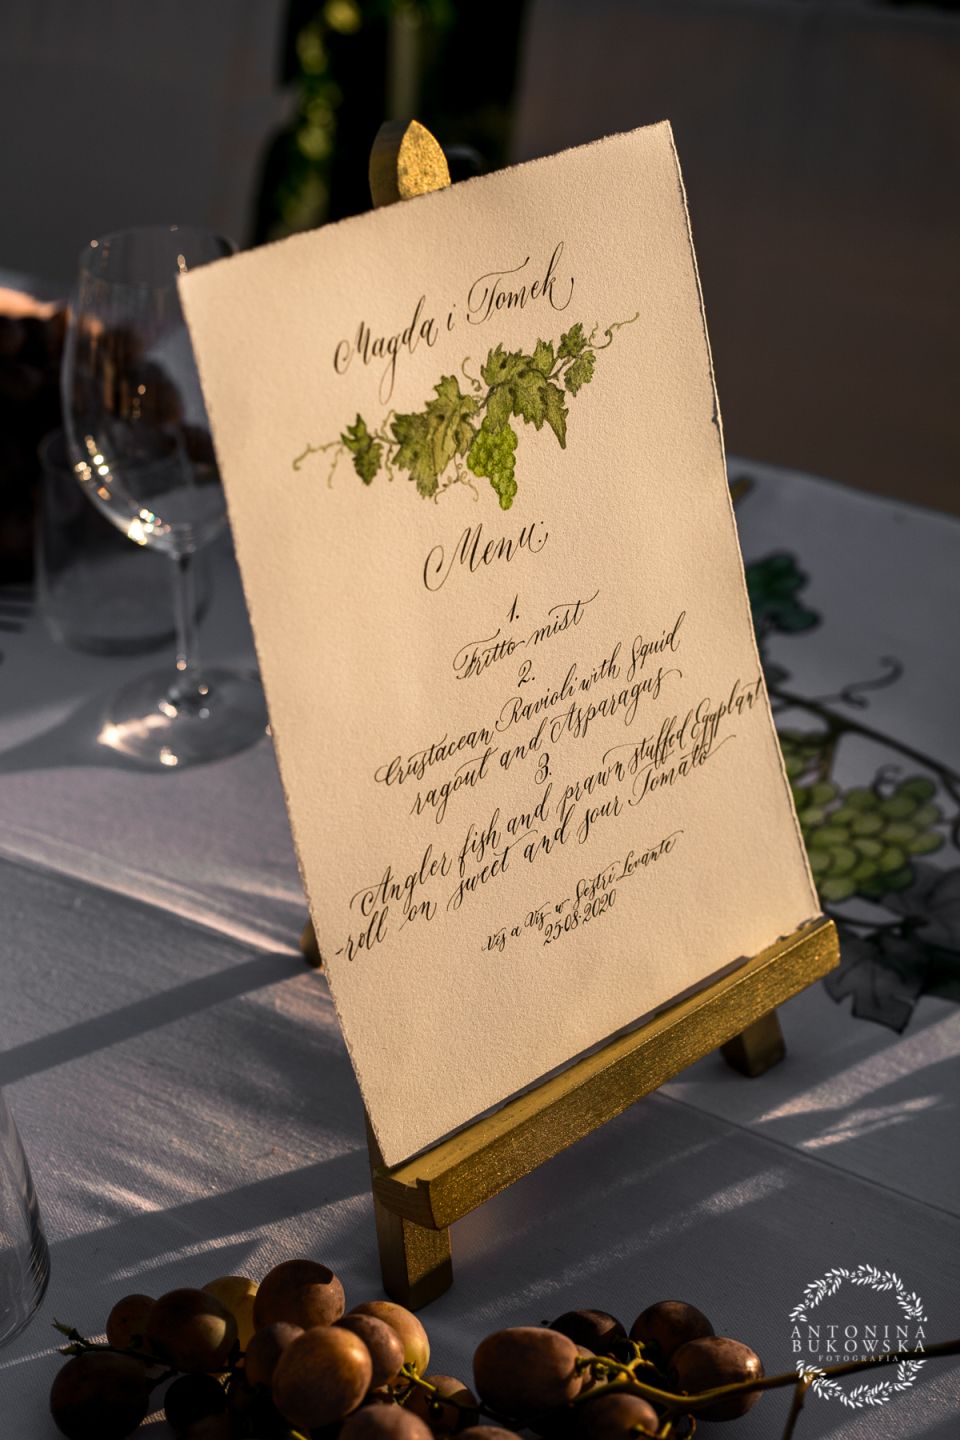 Magda i Tomek
Menu:
1.
Fritto mist
2.
Crustacean Ravioli with Squid
ragout and Asparagus
3.
Angler fish and prawn stuffed Eggplant
-roll on sweet and sour Tomato
Vis a Vis w Sestri Levante
25-08-2020
ANTONINA
BUKOWSKA
FOTOGRAFIA